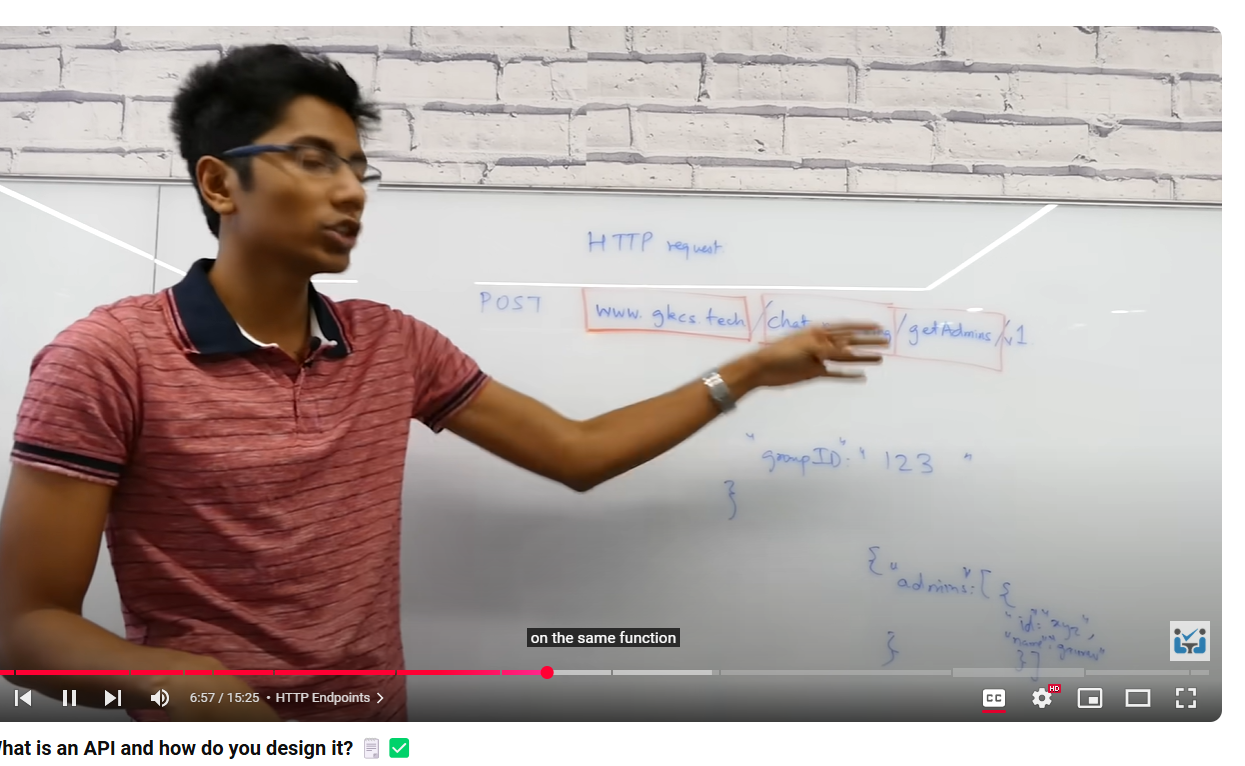 HTTP request
POST www.gkcs.tech/chat /getAdmins/v1
"groupID": "123"
}
{"admins":[{
"id":"xyz",
"name":
}
}]
on the same function
6:57 / 15:25 • HTTP Endpoints >
CC
HD
What is an API and how do you design it? 🗒️ ✅